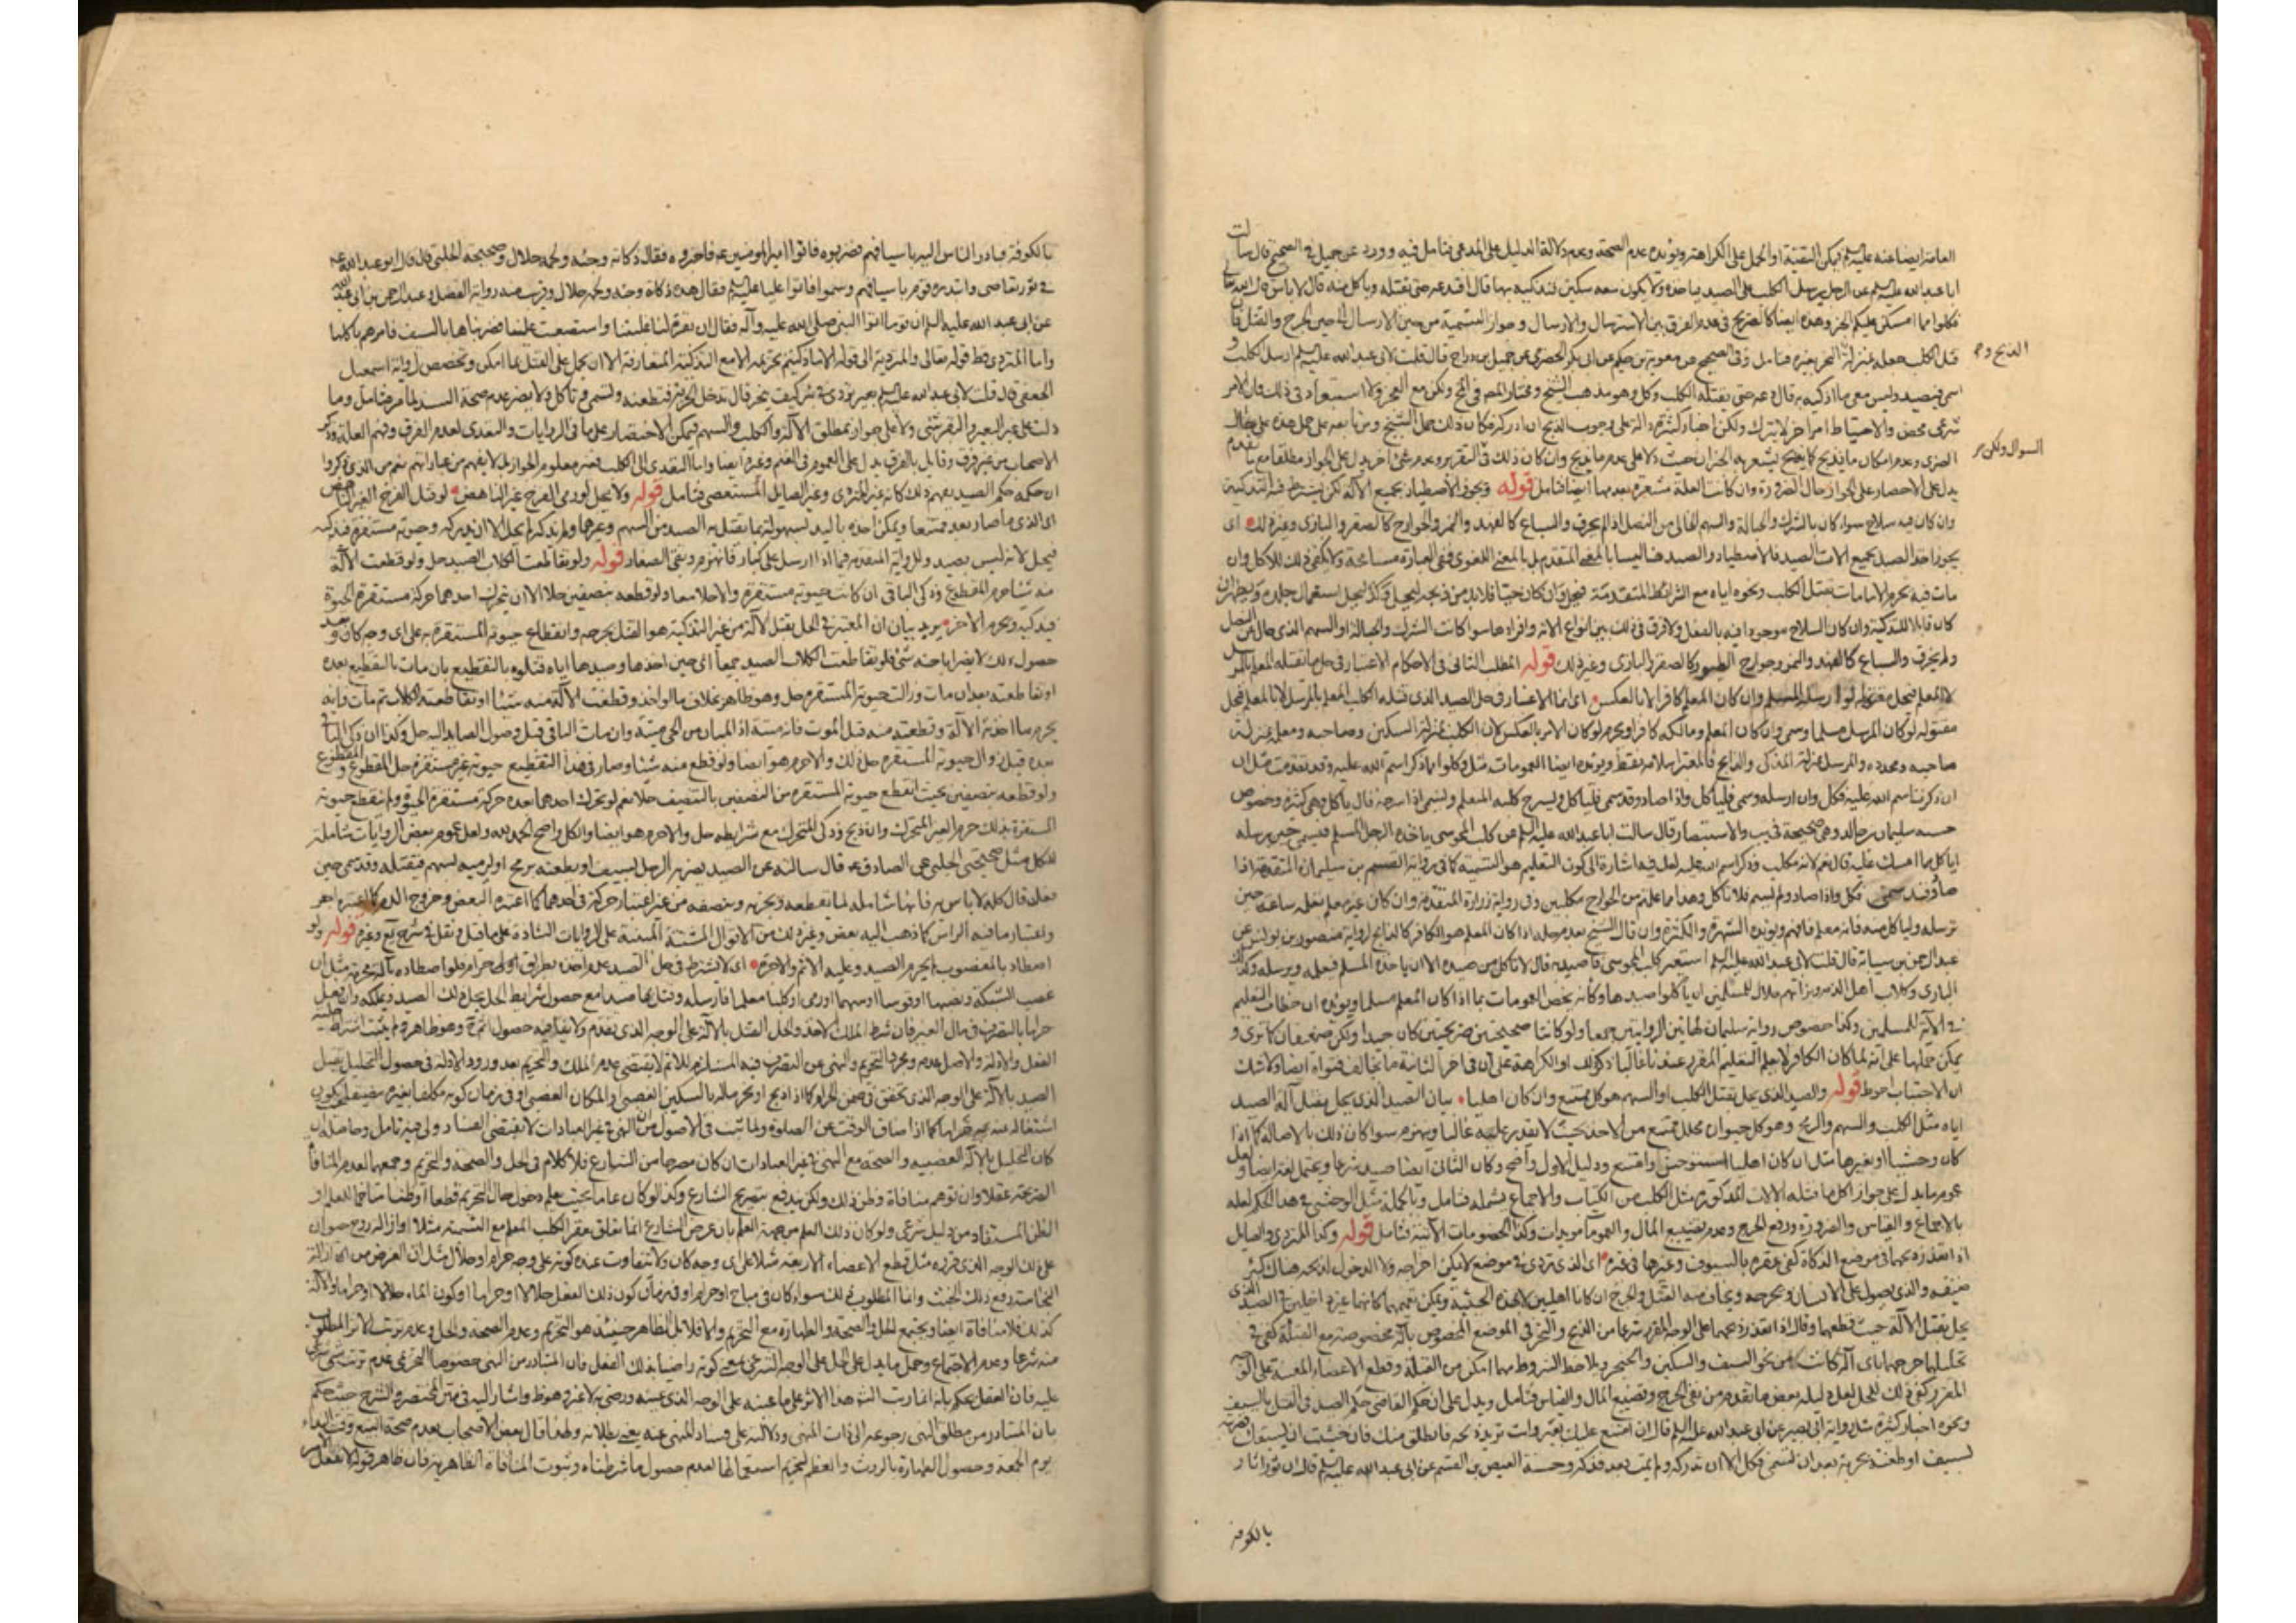 العامة ايضا عنه عليه السلام فيمكن التقية او الحمل على الكراهة ويؤيده عدم الصحة وعدم دلالة الدليل على المدعى فتامل فيه وورد عن جميل في الصحيح قال سألت
ابا عبد الله عليه السلام عن الرجل يرسل الكلب على الصيد فياخذه ولا يكون معه سكين فيذكيه بها قال افيدعه حتى يقتله وياكل منه قال لا باس قال الله
فكلوا مما امسكن عليكم الخ وهذه ايضا كالصريح في عدم الفرق بين الاسترسال والارسال وجواز التسمية من حين الارسال الى حين الجرح والقتل
قتل الكلب جعله بمنزلة النحر بغيره فتامل وفى الصحيح عن معوية بن حكيم عن ابى بكر الحضرمى عن جميل بن دراج قال قلت لابى عبد الله عليه السلام ارسل الكلب
الذبح و
اسمى فيصيد وليس معى ما اذكيه به قال دعه حتى يقتله الكلب وكل وهو مذهب الشيخ ومختار المص في المخ ولكن مع العجز ولا استبعاد فى ذلك فان الامر
شرعى محض والاحتياط امر اخر لا يترك ولكن اخبار كثيرة دالة على وجوب الذبح ان ادركه فكان ذلك حمل الشيخ ومن تابعه على حمل هذه على حال
السوال ولكن
يدل على الاحصار على الجواز حال الضرورة وان كانت العلة مشعرة بعدمها ايضا فتامل قوله ويجوز الاصطياد بجميع الالة لكن يشترط فيه التذكية
وان كان فيه سلاح سواء كان بالشرك والحبالة والسهم الخالى من النصل اذا لم يخرق والسباع كالفهد والنمر والجوارح كالصقر والبازى وغير ذلك اى
يجوز اخذ الصيد بجميع الات الصيد فالاصطياد والصيد هنا ليسا بالمعنى المتقدم بل بالمعنى اللغوى ففى العبارة مسامحة ولا يكفى ذلك للاكل وان
مات فيه يحرم الا ما مات بقتل الكلب ونحوه اياه مع الشرائط المتقدمة فيحل وان كان حيا فلا بد من ذبحه ليحل
كان قابلا للتذكية وان كان السلاح موجودا فيه بالفعل ولا فرق فى ذلك بين انواع الالة وافرادها سواء كانت الشرك والحبالة او السهم الذى خال من النصل
ولم يخرق والسباع كالفهد والنمر وجوارح الطيور كالصقر والبازى وغير ذلك قوله المطلب الثانى فى الاحكام الاعتبار فى حل ما يقتله المعلم بالمرسل
لا المعلم فيحل مقتوله لو ارسله المسلم وان كان المعلم كافرا لا بالعكس اى انما الاعتبار فى حل الصيد الذى قتله الكلب المعلم بالمرسل لا بالمعلم فيحل
مقتوله لو كان المرسل مسلما وسمى وان كان المعلم ومالكه كافرا ويحرم لو كان الامر بالعكس لان الكلب بمنزلة السكين وصاحبه ومعلمه بمنزلة
صاحبه ومحدده والمرسل بمنزلة المذكى والذابح فالمعتبر اسلامه فقط ويؤيده ايضا العمومات مثل وكلوا مما ذكر اسم الله عليه وقد تقدمت مثل ان
ان ذكرت اسم الله عليه فكل وان ارسله وسمى فلياكل واذا صاد وقد سمى فلياكل وليسرح كلبه المعلم وليسمى اذا سرحه قال ياكل وهى كثيرة وخصوص
حسنة سليمان بن خالد وهى صحيحة فى يب والاستبصار قال سالت ابا عبد الله عليه السلام عن كلب المجوسى ياخذه الرجل المسلم فيسمى حين يرسله
اياكل مما امسك عليه قال نعم لانه مكلب وذكر اسم الله عليه لعل فيه اشارة الى كون التعليم هو التسمية كما فى رواية القسم بن سليمان المتقدمة اذا
صاد وقد سمى فكل واذا صاد ولم يسم فلا تاكل وهذا مما علمتم من الجوارح مكلبين وفى رواية زرارة المتقدمة وان كان غير معلم يعلمه ساعته حين
يرسله ولياكل منه فانه معلم فافهم ويؤيده الشهرة والكثرة وان قال الشيخ بعدم حله اذا كان المعلم هو الكافر كالذابح لرواية منصور بن يونس عن
عبد الرحمن بن سيابة قال قلت لابى عبد الله عليه السلام استعير كلب المجوسى فاصيد به قال لا تاكل من صيده الا ان ياخذه المسلم فيعلمه ويرسله وكذلك
البازى وكلاب اهل الذمة وبزاتهم حلال للمسلمين ان ياكلوا صيدها وكانه يخص العمومات بما اذا كان المعلم مسلما ويؤيده ان خطاب التعليم
فى الاية للمسلمين وكذا خصوص رواية سليمان لهاتين الروايتين جمعا ولو كانتا صحيحتين صريحتين كان جيدا ولكن ضعيفتان كما ترى و
يمكن حملها على انه لما كان الكافر لا يعلم التعليم المقرر عندنا غالبا ذكر ذلك او الكراهة على ان فى اخر الثانية ما يخالف فتواه ايضا ولا شك
ان الاجتناب احوط قوله والصيد الذى يحل بقتل الكلب او السهم هو كل ممتنع وان كان اهليا بيان الصيد الذى يحل بقتل آلة الصيد
اياه مثل الكلب والسهم والرمح وهو كل حيوان محلل ممتنع من الاخذ بحيث لا يقدر عليه غالبا وينهزم سواء كان ذلك بالاصالة كما اذا
كان وحشيا او بغيرها مثل ان كان اهليا استوحش وامتنع ودليل الاول واضح وكان الثانى ايضا صيد شرعا ويحتمل لغة ايضا
عموم ما يدل على جواز اكل ما قتله الالات المذكورة مثل الكلب من الكتاب والاجماع يشمله فتامل وبالجملة مثل الوحشى فى هذا الحكم لعله
بالاجماع والقياس والضرورة ودفع الحرج وعدم تضييع المال والعموما مؤيدات وكذا الخصومات الاتية فتامل قوله وكذا المتردى والصايل
اذا تعذر ذبحها فى موضع الذكاة كفى عقره بالسيوف وغيرها فى غيره اى الذى تردى فى موضع لا يمكن اخراجه ولا الدخول لذبحه هناك كبئر
ضيقة والذى يصول على الانسان ويجرحه ويخاف منه القتل والجرح ان كانا اهليين
يحل بقتل الالة حيث قطعها وقال اذا تعذر ذبحهما على الوجه المقرر شرعا من الذبح والنحر فى الموضع المخصوص بآلة مخصوصة مع القبلة كفى فى
تحليلهما جرحهما باى آلة كانت من نحو السيف والسكين والخنجر ويلاحظ الشروط مهما امكن من القبلة وقطع الاعضاء المعينة على الوجه
المقرر كفى ذلك للحل لعل دليله بعض ما تقدم من نفى الحرج وتضييع المال والقياس فتامل ويدل على ان حكم العاصى حكم الصيد فى القتل بالسيف
ونحوه اخبار كثيرة مثل رواية ابى بصير عن ابى عبد الله عليه السلام قال ان امتنع عليك بعير وانت تريد نحره فانطلق منك فان خشيت ان يسبقك فضربته
بسيف او طعنته بحربة بعد ان تسمى فكل الا ان تدركه ولم يمت بعد فذكه وحسنة العيص بن القسم عن ابى عبد الله عليه السلام قال ان ثورا ثار
بالكوفة
بالكوفة فبادر الناس اليه باسيافهم فضربوه فاتوا امير المومنين عه فاخبروه فقال ذكاة وحية ولحمه حلال وصحيحة الحلبى قال قال ابو عبد الله عه
فى ثور تعاصى وابتدره قوم باسيافهم وسموا فاتوا عليا عليه السلام فقال هذه ذكاة وحية ولحمه حلال وقريب منه رواية الفضل وعبد الرحمن بن ابى عبد الله
عن ابى عبد الله عليه السلام ان قوما اتوا النبى صلى الله عليه وآله فقالوا ان بقرة لنا غلبتنا واستصعبت علينا فضربناها بالسيف فامرهم باكلها
واما المتردى فظ قوله تعالى والمتردية الى قوله الا ما ذكيتم تحريمه الا مع التذكية المتعارفة الا ان يحمل على القتل بما امكن وتخصص لرواية اسمعيل
الجعفى قال قلت لابى عبد الله عليه السلام بعير تردى فى بئر كيف ينحر قال تدخل الحربة فتطعنه وتسمى وتاكل ولا يضر عدم صحة السند لما مر فتامل وما
دلت على غير البعير والبقر شى ولا على جواز مطلق الالة فالكلب والسهم فيمكن الاختصار على ما فى الروايات والتعدى لعدم الفرق وفهم العلة وذكر
الاصحاب من غير فرق وقايل بالفرق يدل على العموم فى الغنم وغيره ايضا واما التعدى الى الكلب فغير معلوم الجواز لما لا يفهم من عباراتهم نعم من الذى ذكروا
ان حكمه حكم الصيد يفهم ذلك كانه غير المتردى وغير الصايل المستعصى فتامل قوله ولا يحل لو رمى الفرخ غير الناهض لو قتل الفرخ الغير الناهض
اى الذى ما صار بعد ممتنعا ويمكن اخذه باليد لسهولة بما يقتل به الصيد من السهم وغيرها ولم يذكه لم يحل الا ان يدركه وحيوته مستقرة فيذكيه
فيحل لانه ليس بصيد وللرواية المتقدمة فيما اذا ارسل على كبار فانهزم وبقى الصغار قوله ولو تقاطعت الكلاب الصيد حل ولو قطعت الآلة
منه شيئا حرم المقطوع وذكى الباقى ان كانت حيوته مستقرة والا حلا معا ولو قطعه بنصفين حلا الا ان تحرك احدهما حركة مستقر الحيوة
فيذكيه ويحرم الاخر يريد بيان ان المعتبر فى الحل بقتل الآلة من غير التذكية هو القتل بجرحه وانقطاع حيوته المستقرة به على اى وجه كان وبعد
حصول ذلك لا يضر اباحته شئ فلو تقاطعت الكلاب الصيد جميعا اى حين اخذها وصيدها اياه قتلوه بالتقطيع بان مات بالتقطيع بعده
او تقاطعته بعد ان مات وزالت حيوته المستقرة حل وهو ظاهر بخلاف ما لو اخذ وقطعت الآلة منه شيئا او تقاطعته الكلاب ثم مات فانه
يحرم ما اخذته الآلة وقطعته منه قبل الموت فانه ميتة اذ المبان من الحى ميتة وان مات الباقى قبل وصول الصايد اليه حل وكذا ان ذكى الباقى
بعده قبل زوال حيوته المستقرة حل ذلك والا حرم هو ايضا ولو قطع منه شيئا وصار فى هذا التقطيع حيوته غير مستقرة حل المقطوع والمقطوع
ولو قطعه بنصفين بحيث انقطع حيوته المستقرة من النصفين بالتنصيف حلا نعم لو تحرك احدهما بعده حركة مستقرة الحيوة ولم تنقطع حيوته
المستقرة بذلك حرم الغير المتحرك وان ذبح وذكى المتحرك مع شرائطه حل والا حرم هو ايضا والكل واضح الحمد لله ولعل عموم بعض الروايات شاملة
للكل مثل صحيحتى الحلبى عن الصادق عه قال سالته عن الصيد يضربه الرجل بسيف او يطعنه برمح او يرميه بسهم فيقتله وقد سمى حين
فعل قال كله لا باس به فانها شاملة لما يقطعه ويحزبه وينصفه من غير اعتبار حركة فى احدهما كما اعتبره البعض وخروج الدم كما اعتبره اخر
واعتبار ما فيه الراس كما ذهب اليه بعض وغير ذلك من الاقوال المشتتة المبنية على الروايات الشاذة على ما قيل ونقل فى شرح يع وغيره قوله ولو
اصطاد بالمغصوب لم يحرم الصيد وعليه الاثم والاجرة اى لا يشترط فى حل الصيد عدم اخذه بطريق او آلة حرام فلو اصطاده بآلة محرمة مثل ان
غصب الشبكة ونصبها او قوسا او سهما او رمى او كلبا معلما فارسله وقتل بها صيدا مع حصول شرايط الحل يحل ذلك الصيد ويملكه وان فعل
حراما بالتصرف فى مال الغير فان شرط الملك الاخذ والحل القتل بالآلة على الوجه الذى تقدم ولا ينافيه حصول اثم وهو ظاهر ولم يثبت اشتراط حلية
الفعل والآلة والاصل عدمه ومجرد التحريم والنهى عن التصرف فيه المستلزم للاثم لا يقتضى عدم الملك والتحريم بعد ورود الادلة فى حصول التحليل بقتل
الصيد بالآلة على الوجه الذى تحقق فى ضمن الحرام كما اذا ذبح او نحر ماله بالسكين الغصبى والمكان الغصبى او فى زمان كونه مكلفا بغيره مضيقا يكون
اشتغاله به حراما كما اذا ضاق الوقت عن الصلوة ولما ثبت فى الاصول من ان النهى فى غير العبادات لا يقتضى الفساد ولى فيه تامل وحاصله ان
كان التحليل بالآلة الغصبية والصحة مع النهى فى غير العبادات ان كان مصرحا من الشارع فلا كلام فى الحل والصحة والتحريم وجمعهما لعدم المنافاة
الصريحة عقلا وان توهم منافاة وظن ذلك ولكن يدفع بتصريح الشارع وكذا لو كان عاما بحيث يعلم دخول حال التحريم قطعا او ظنا متاخما للعلم او
الظن المستفاد من دليل شرعى ولو كان ذلك العلم من جهة العلم بان غرض الشارع انما تعلق بعقر الكلب المعلم مع التسمية مثلا او ازالة روح حيوان
على ذلك الوجه الذى قرره مثل قطع الاعضاء الاربعة مثلا على اى وجه كان ولا تتفاوت عنده كونه على وجه حرام او حلال مثل ان الغرض من ازالة
النجاسة دفع ذلك الخبث وانما المطلوب ذلك سواء كان فى مباح او حرام او فى زمان كون ذلك الفعل حلالا او حراما او كون الماء حلالا او حراما والآلة
كذلك فلا منافاة ايضا ويجتمع الحل والصحة والطهارة مع التحريم والا فلا بل الظاهر حينئذ هو التحريم وعدم الصحة والحل وعدم ترتب الاثر المطلوب
منه شرعا وعدم الاجتماع وحمل ما يدل على الحل على الوجه الشرعى بمعنى كونه راضيا بذلك الفعل فان المتبادر من النهى خصوصا التحريمى عدم ترتب شئ شرعى
عليه فان العقل يحكم بانه انما رتب الشارع هذا الاثر على ما عينه على الوجه الذى عينه ورضى به لا غير وهو ظ واشار اليه فى متن المختصر والشرح حيث حكم
بان المتبادر من مطلق النهى رجوعه الى ذات المنهى ودلالته على فساد المنهى عنه يعنى بطلانه ولهذا قال بعض الاصحاب بعدم صحة البيع وقت النداء
يوم الجمعة وحصول الطهارة بالروث والعظم لتحريم استعمالها لعدم حصول ما شرطناه وثبوت المنافاة الظاهرية فان ظاهر قوله لا تفعل